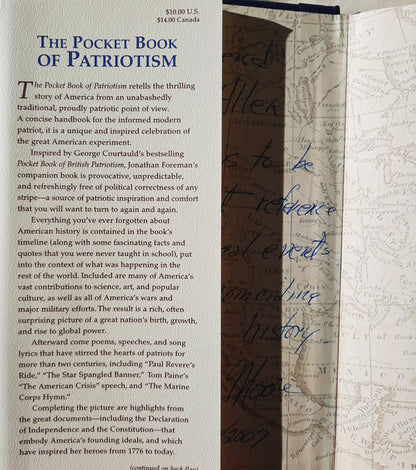 $10.00 U.S.
$14.00 Canada
THE POCKET BOOK
OF PATRIOTISM
The Pocket Book of Patriotism retells the thrilling
story of America from an unabashedly
traditional, proudly patriotic point of view.
A concise handbook for the informed modern
patriot, it is a unique and inspired celebration of
the great American experiment.
Inspired by George Courtauld's bestselling
Pocket Book of British Patriotism, Jonathan Foreman's
companion book is provocative, unpredictable,
and refreshingly free of political correctness of any
stripe—a source of patriotic inspiration and comfort
that you will want to turn to again and again.
Everything you've ever forgotten about
American history is contained in the book's
timeline (along with some fascinating facts and
quotes that you were never taught in school), put
into the context of what was happening in the
rest of the world. Included are many of America's
vast contributions to science, art, and popular
culture, as well as all of America's wars and
major military efforts. The result is a rich, often
surprising picture of a great nation's birth, growth,
and rise to global power.
Afterward come poems, speeches, and song
lyrics that have stirred the hearts of patriots for
more than two centuries, including "Paul Revere's
Ride," "The Star Spangled Banner," Tom Paine's
"The American Crisis" speech, and "The Marine
Corps Hymn."
Completing the picture are highlights from
the great documents—including the Declaration
of Independence and the Constitution—that
embody America's founding ideals, and which
have inspired her heroes from 1776 to today.
(continued on back flap)
end
Allen
s to be
t reference
al events
oinciding
history
Moore
2007